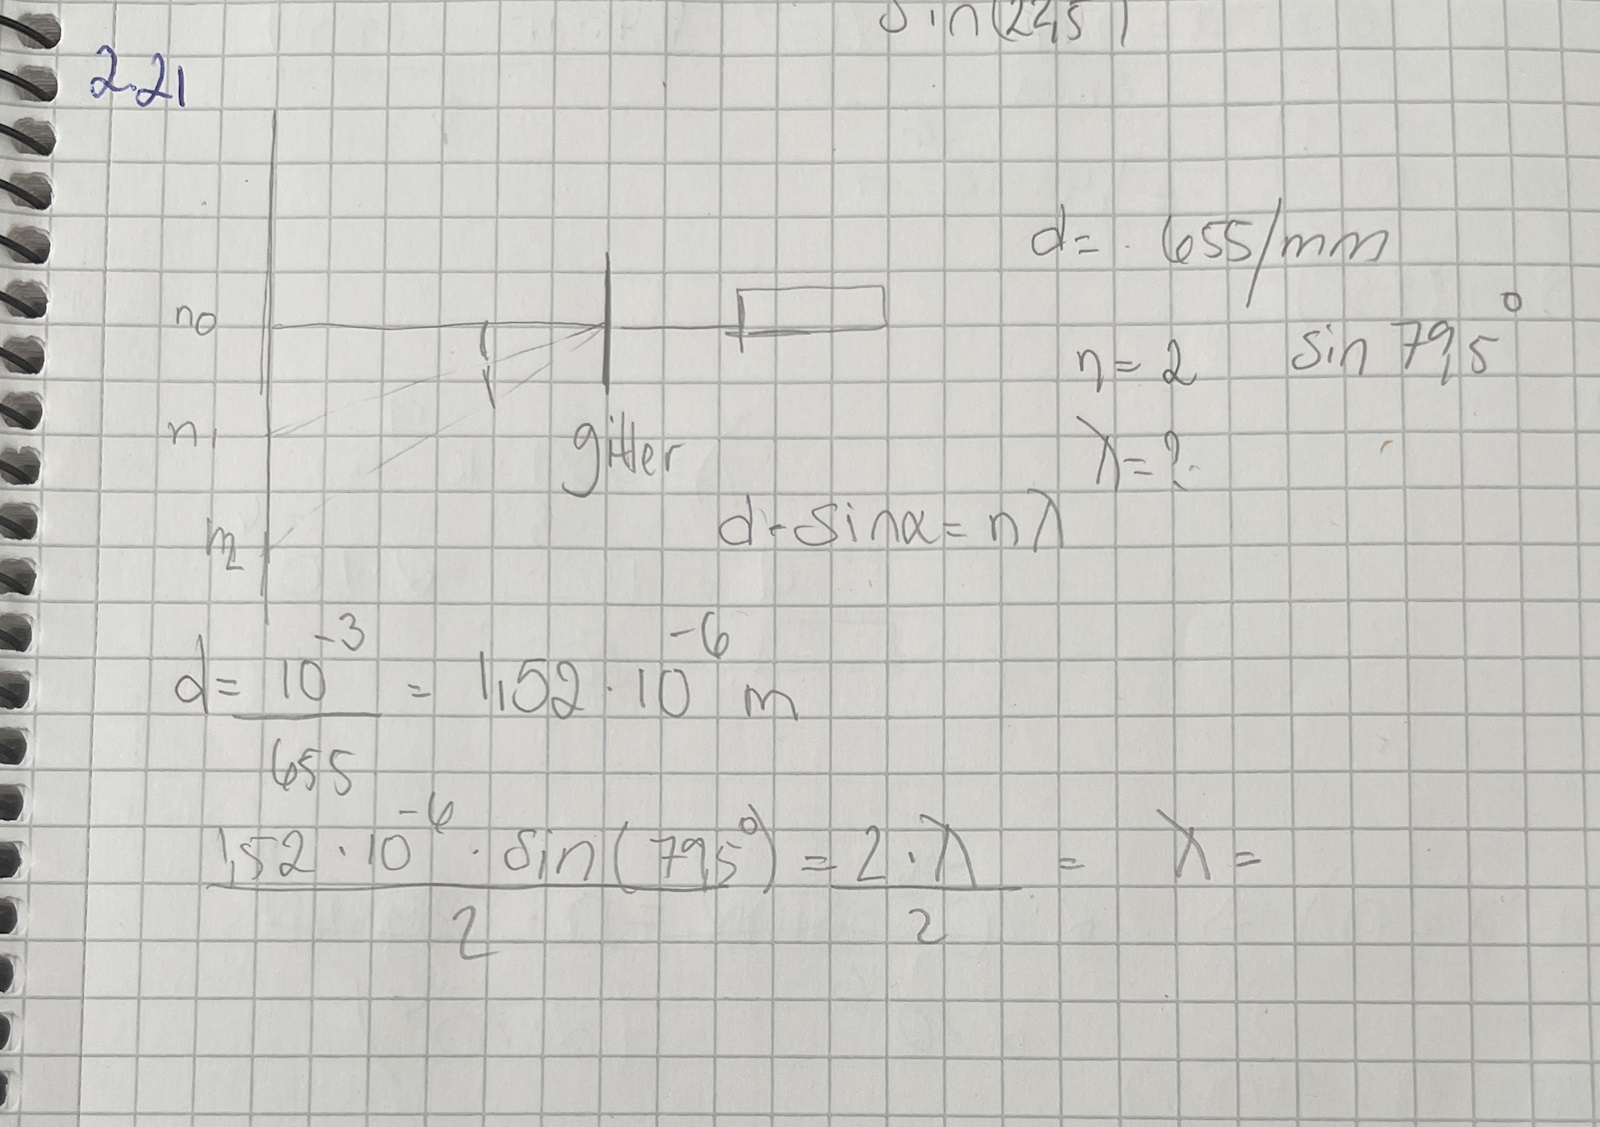 sin(22,5)
2.21
d= 655/mm
n0
n=2 sin 79,5°
n1
gitter
λ=?
d·sinα=nλ
n2
d= 10^-3 / 655 = 1,52·10^-6 m
1,52·10^-6 · sin(79,5°) / 2 = 2·λ / 2 = λ=